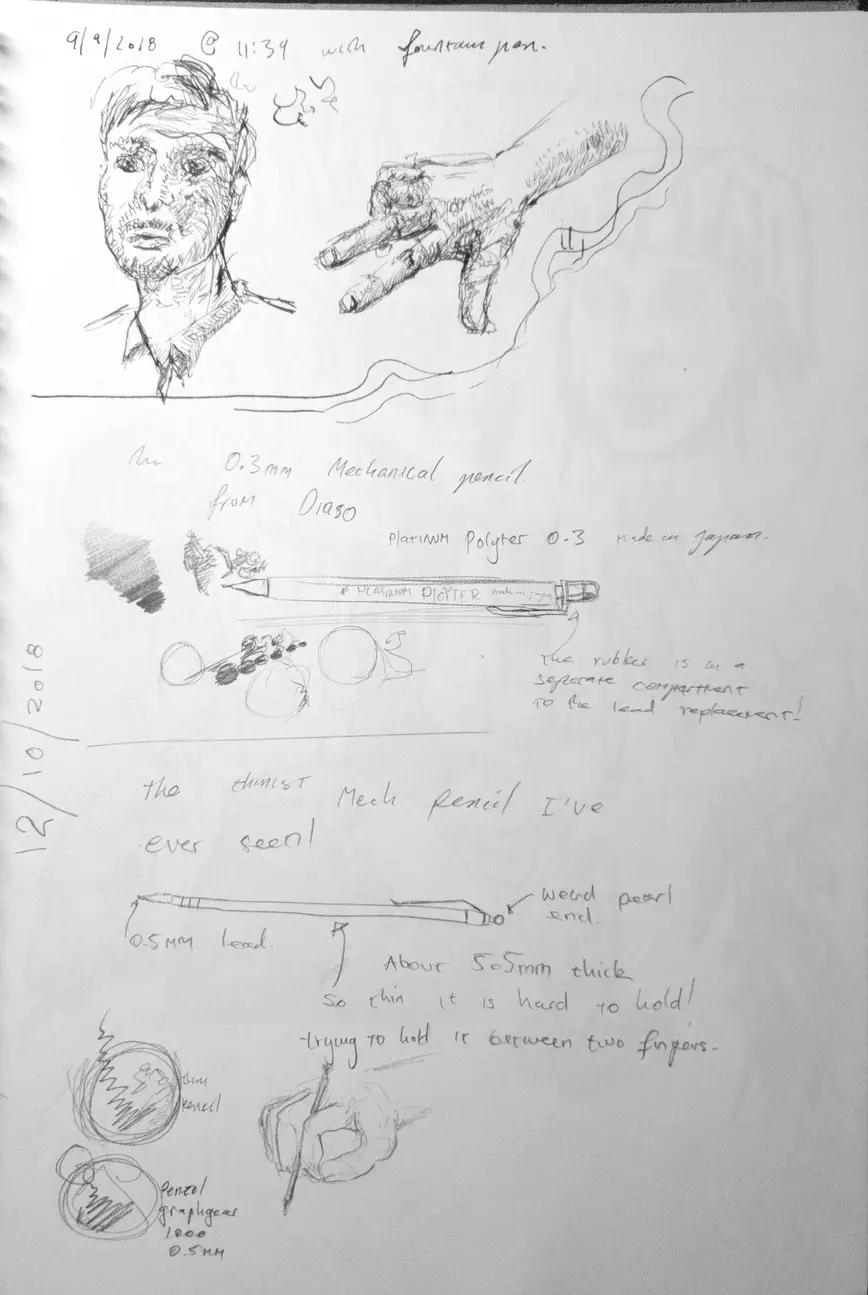 9/9/2018 @ 11:39 with fountain pen.
0.3mm Mechanical pencil
from Diaso
PLATINUM Polyter 0.3 made in Japan.
PLATINUM POLYTER made in
The rubber is in a
seperate compartment
to the lead replacement!
12/10/2018
The thinist Mech pencil I've
ever seen!
weird pearl
end.
0.5MM lead.
About 5.5mm thick
so thin it is hard to hold!
trying to hold it between two fingers.
thin
pencil
Pentel
graphgear
1000
0.5MM